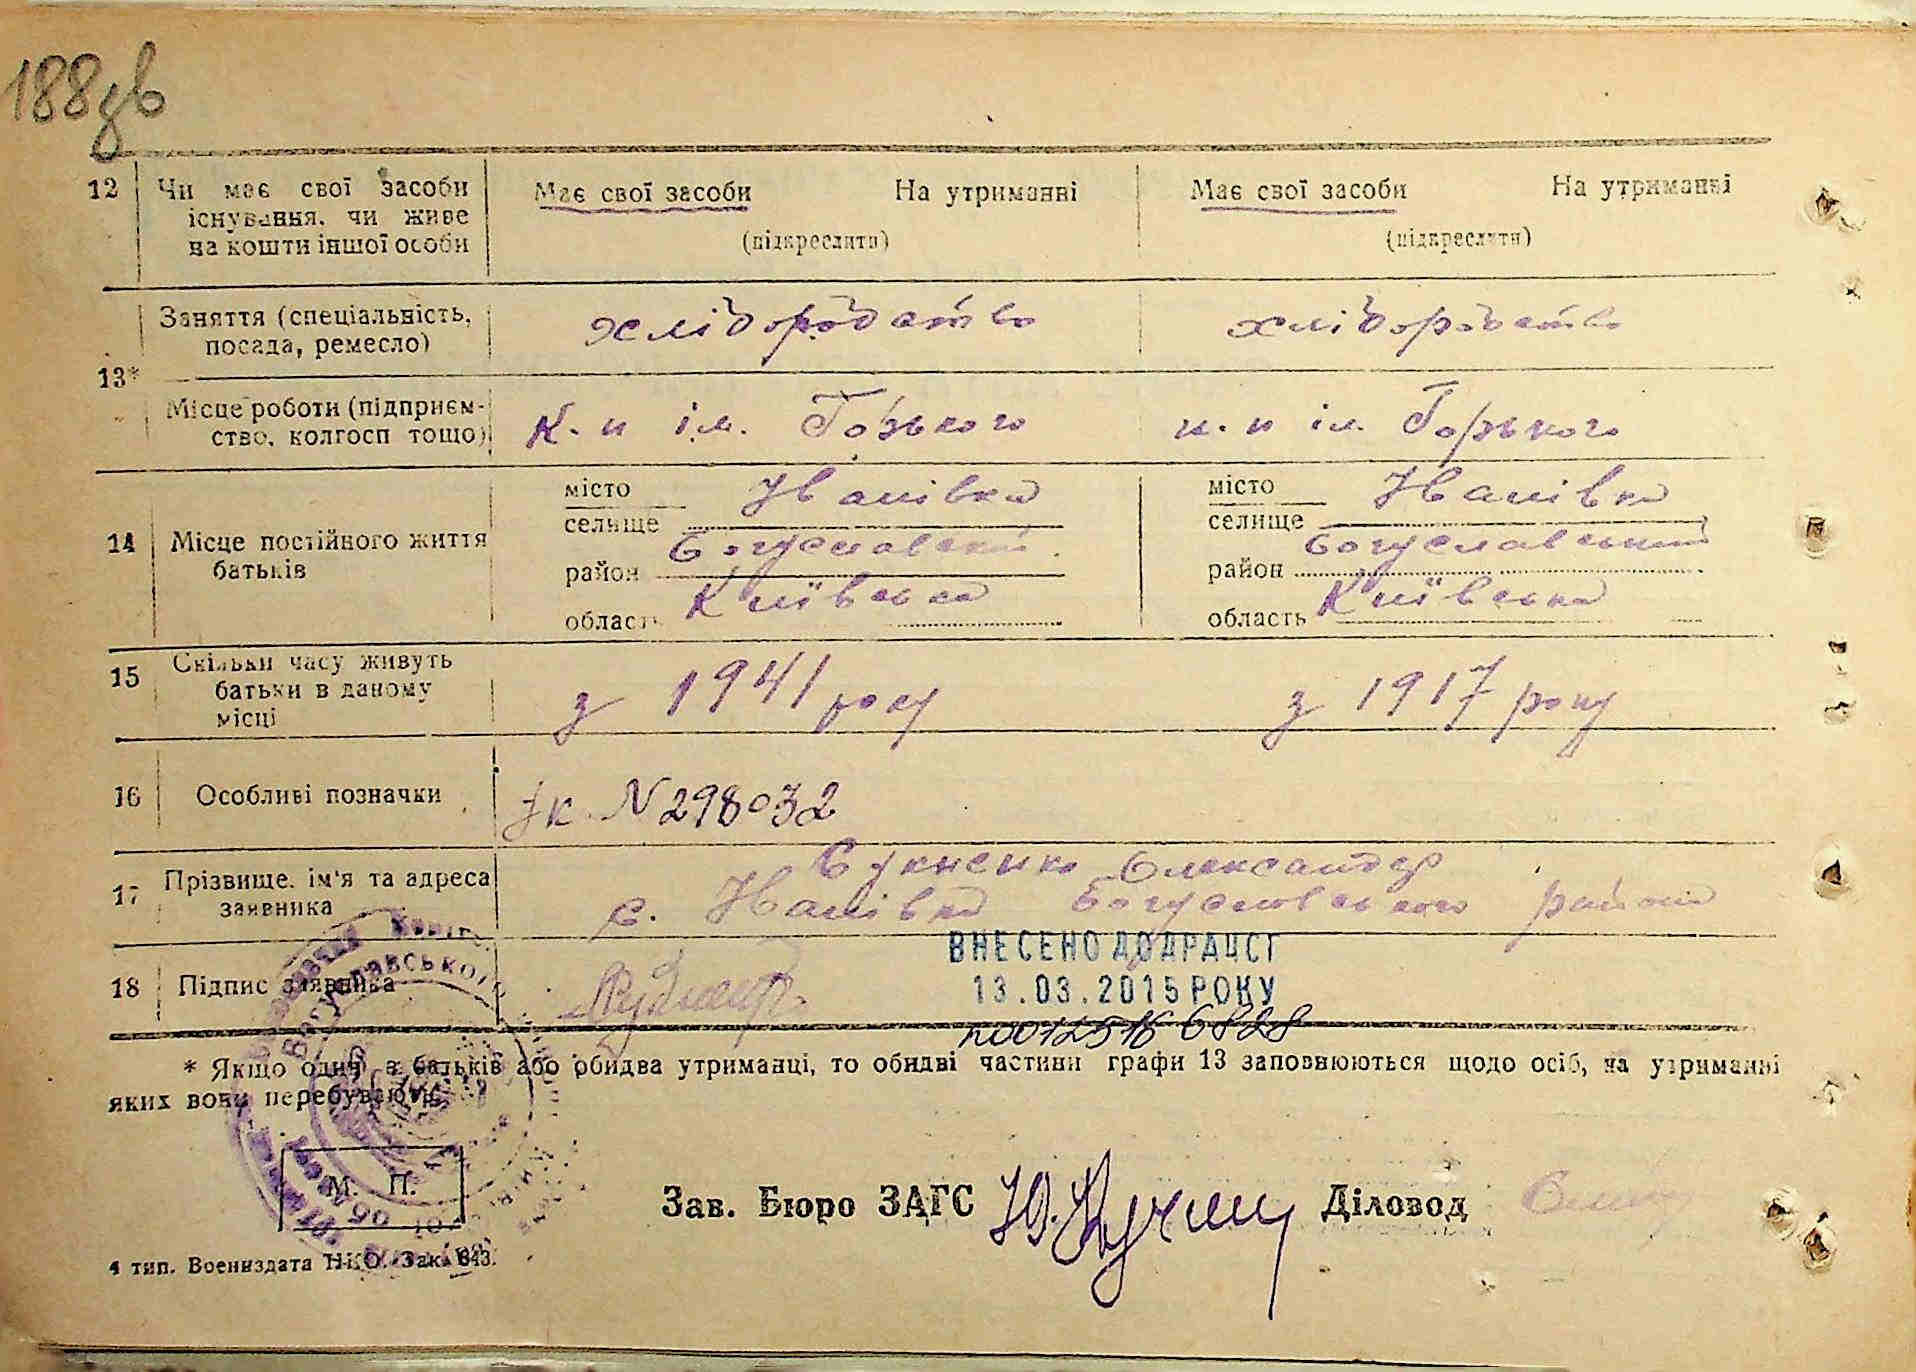 188зв
12 Чи має свої засоби існування, чи живе на кошти іншої особи
Має свої засоби На утриманні
(підкреслити)
Має свої засоби На утриманні
(підкреслити)
13*
Заняття (спеціальність, посада, ремесло)
хліборобство
хліборобство
Місце роботи (підприємство, колгосп тощо)
к-п ім. Горького
к-п ім. Горького
14 Місце постійного життя батьків
місто
селище Іванівка
район Богуславський
область Київська
місто
селище Іванівка
район Богуславський
область Київська
15 Скільки часу живуть батьки в даному місці
з 1941 року
з 1917 року
16 Особливі позначки
N 298032
17 Прізвище, ім'я та адреса заявника
Олександр
с. Іванівка Богуславського району
18 Підпис заявника
ВНЕСЕНО ДО ДРАЦСГ
13.03.2015 РОКУ
* Якщо один з батьків або обидва утриманці, то обидві частини графи 13 заповнюються щодо осіб, на утриманні
яких вони перебувають.
М. П.
Зав. Бюро ЗАГС
Діловод
4 тип. Воениздата НКО. Зак. 643.